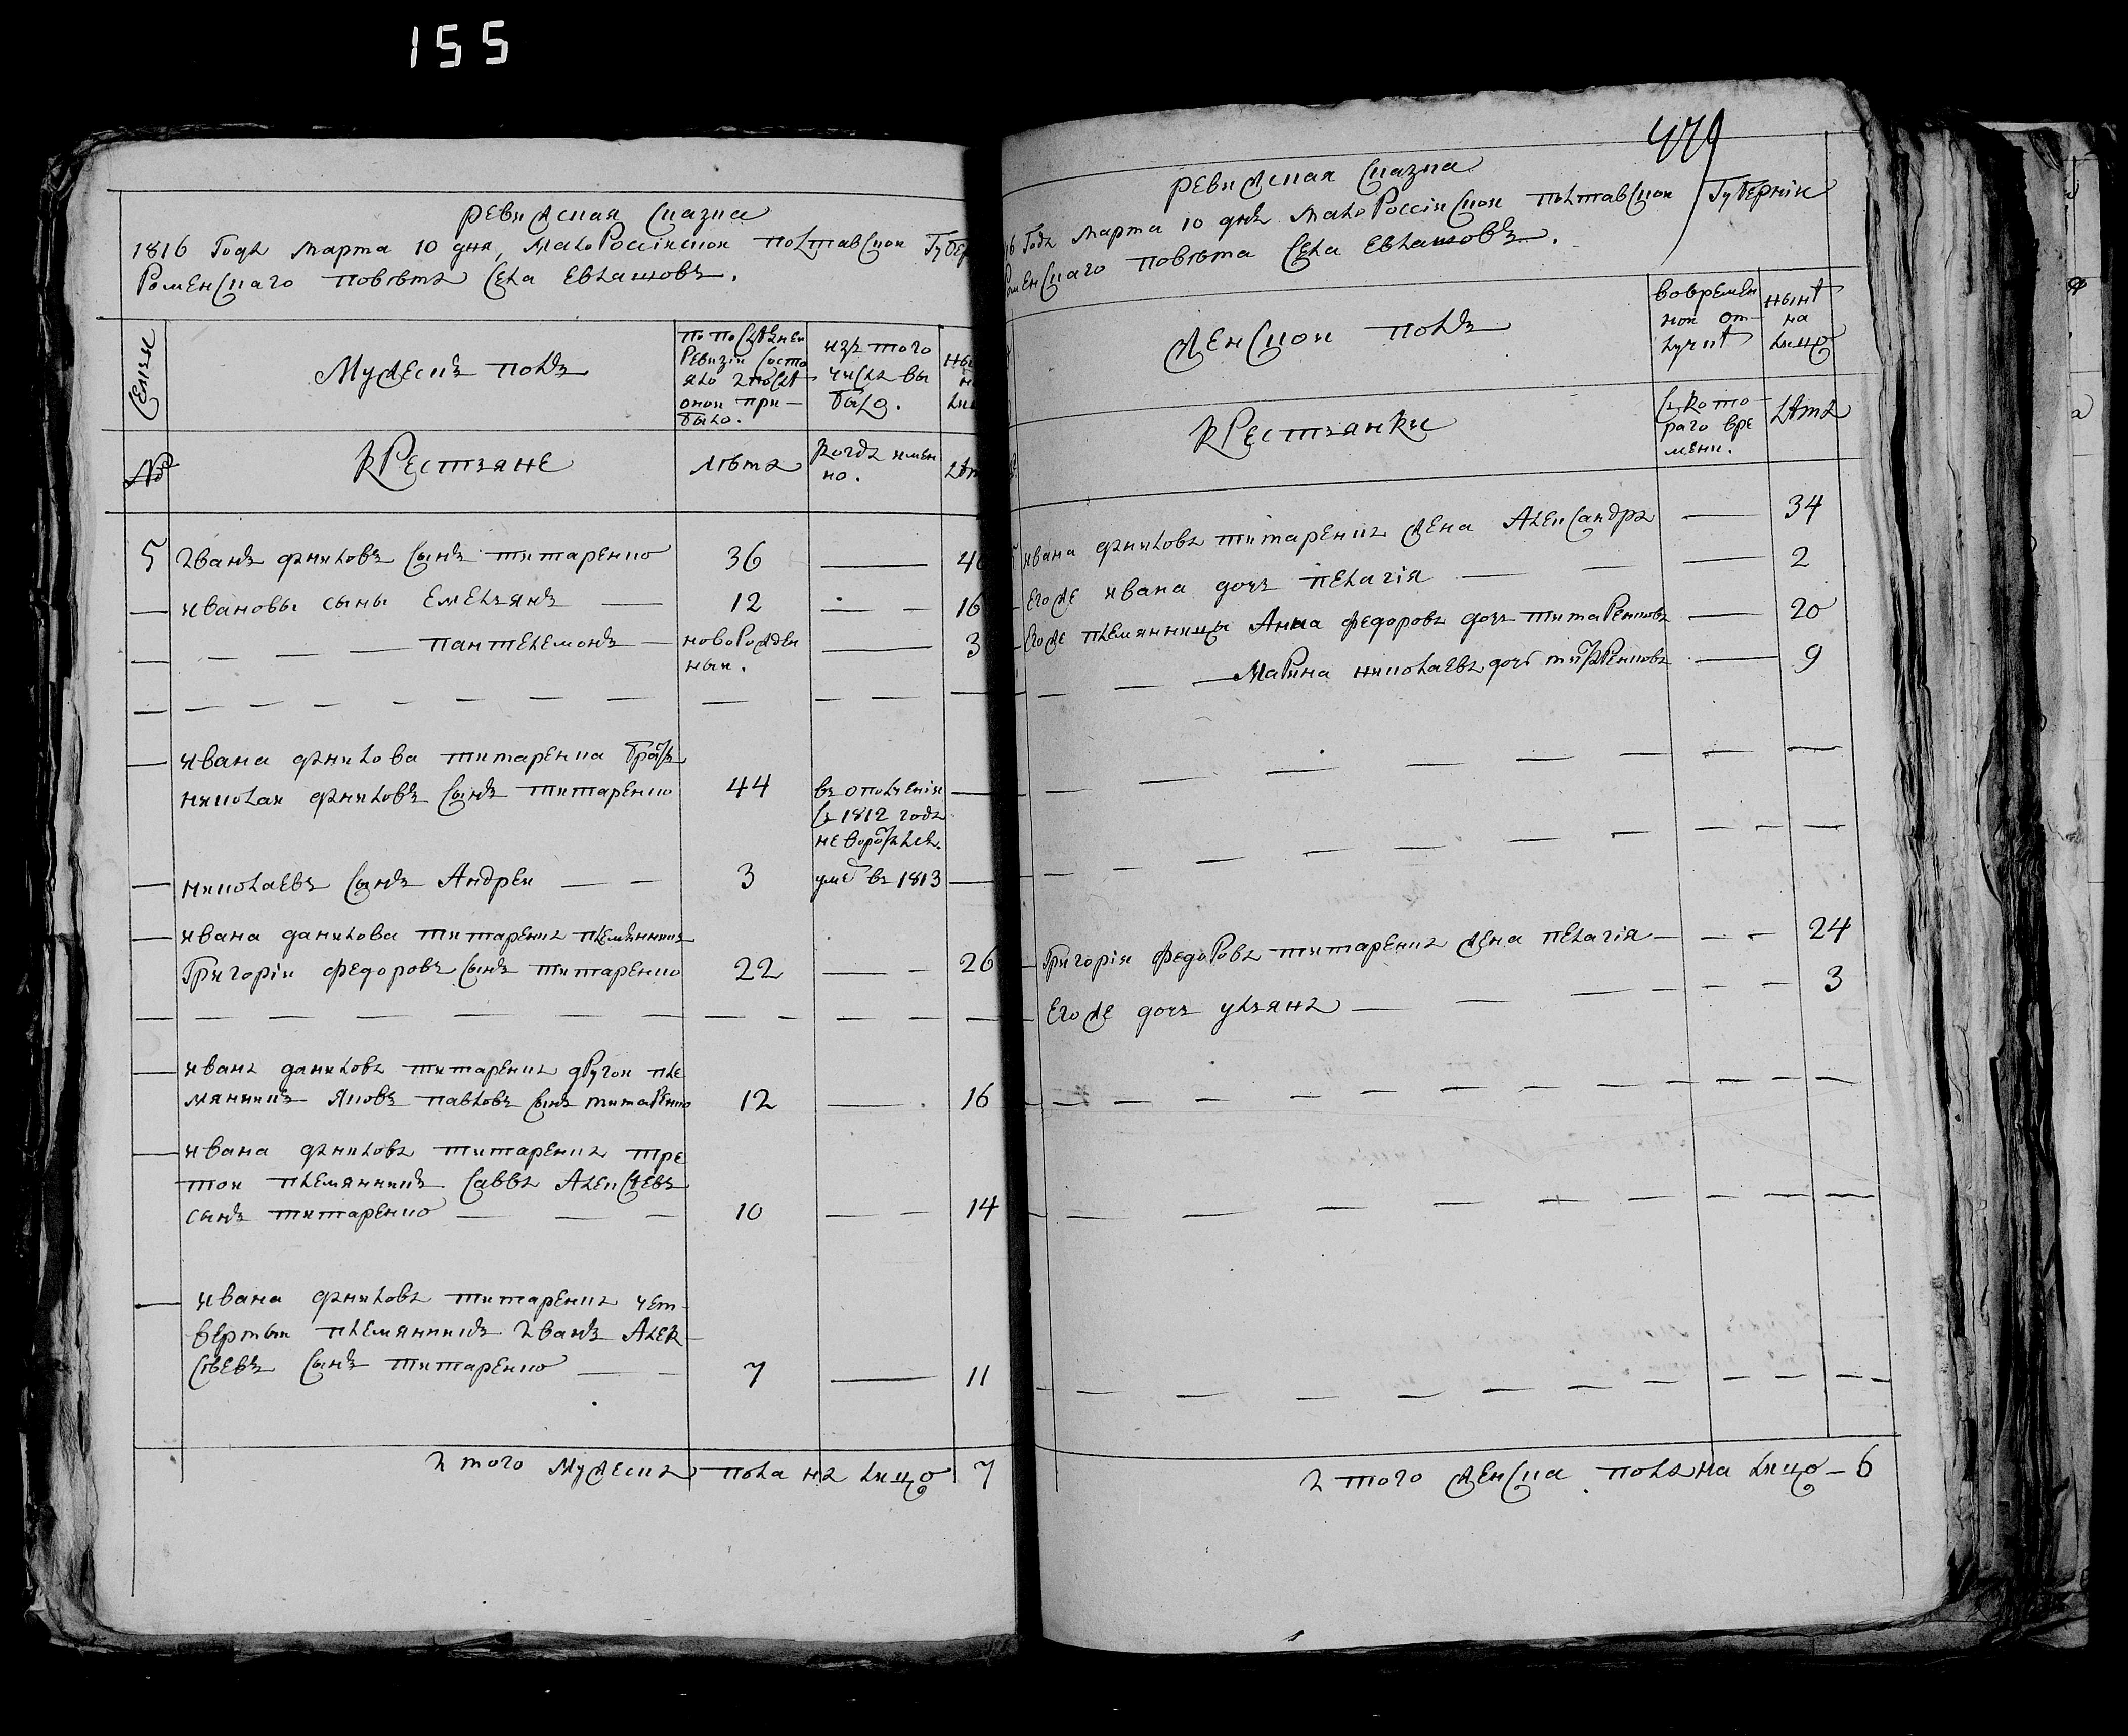 155
ревизская сказка
1816 Года марта 10 дня, МалоРоссійской полтавской Губер
Роменскаго повѣта села Евлашовъ.
Семьи
Мужескъ полъ
по послѣдней
Ревизіи состо
яло и послѣ
оной при-
было.
изъ того
числа вы
было.
№
КРестьяне
лѣта
когда имен
но.
5 Иванъ даниловъ сынъ титаренко 36 — 46
Ивановы сыны Емельянъ — 12 — 16
пантелемонъ — новоРожден — 3
ный.
Ивана данилова титаренка братъ
николай даниловъ сынъ титаренко 44 въ ополченіи —
съ 1812 года
не воротился.
николаевъ сынъ Андрей — 3 умеръ въ 1813 —
Ивана данилова титаренка племянникъ
Григорій федоровъ сынъ титаренко 22 — 26
Ивана данилова титаренка дРугой пле
мянникъ Яковъ павловъ сынъ титаРенко 12 — 16
Ивана данилова титаренка тре
той племянникъ Савва Алексѣевъ
сынъ титаренко — 10 — 14
Ивана данилова титаренка чет-
вертый племянникъ Иванъ Алек-
сѣевъ сынъ титаренко — 7 — 11
Итого Мужеска пола на лицо 7
479
ревизская сказка
16 Года марта 10 дня МалоРоссійской полтавской Губерніи
Роменскаго повѣта села Евлашовъ.
женской полъ
вовремен
ной от-
лучкѣ
нынѣ
на
лицо
КРестьянки
съ кото-
раго вре
мени.
лѣта
5 Ивана данилова титаренка жена Александра — 34
Егоже Ивана дочь пелагія — 2
Егоже племянницы Анна федорова дочь титаРенкова — 20
МаРина николаева дочь титаРенкова — 9
Григорія федоРова титаренка жена пелагія — 24
Егоже дочь ульяна — 3
Итого женска пола на лицо — 6